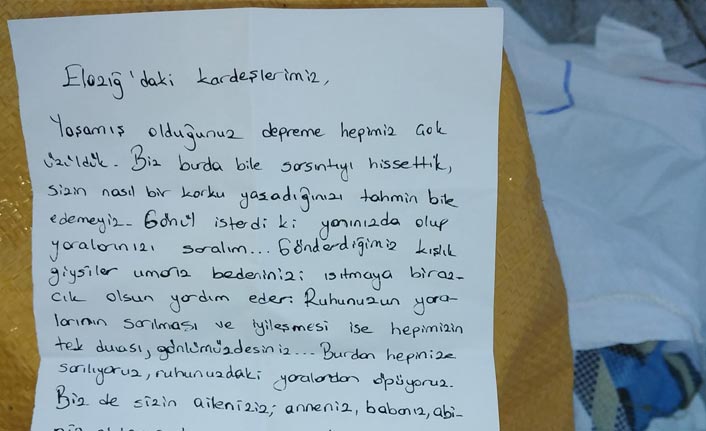 Elazığ'daki kardeşlerimiz,
Yaşamış olduğunuz depreme hepimiz çok
üzüldük. Biz burda bile sarsıntıyı hissettik,
sizin nasıl bir korku yaşadığınızı tahmin bile
edemeyiz. Gönül isterdi ki yanınızda olup
yaralarınızı saralım... Gönderdiğimiz kışlık
giysiler umarız bedeninizi ısıtmaya biraz-
cık olsun yardım eder. Ruhunuzun yara-
larının sarılması ve iyileşmesi ise hepimizin
tek duası, gönlümüzdesiniz... Burdan hepinize
sarılıyoruz, ruhunuzdaki yaralardan öpüyoruz.
Biz de sizin aileniziz; anneniz, babanız, abi-